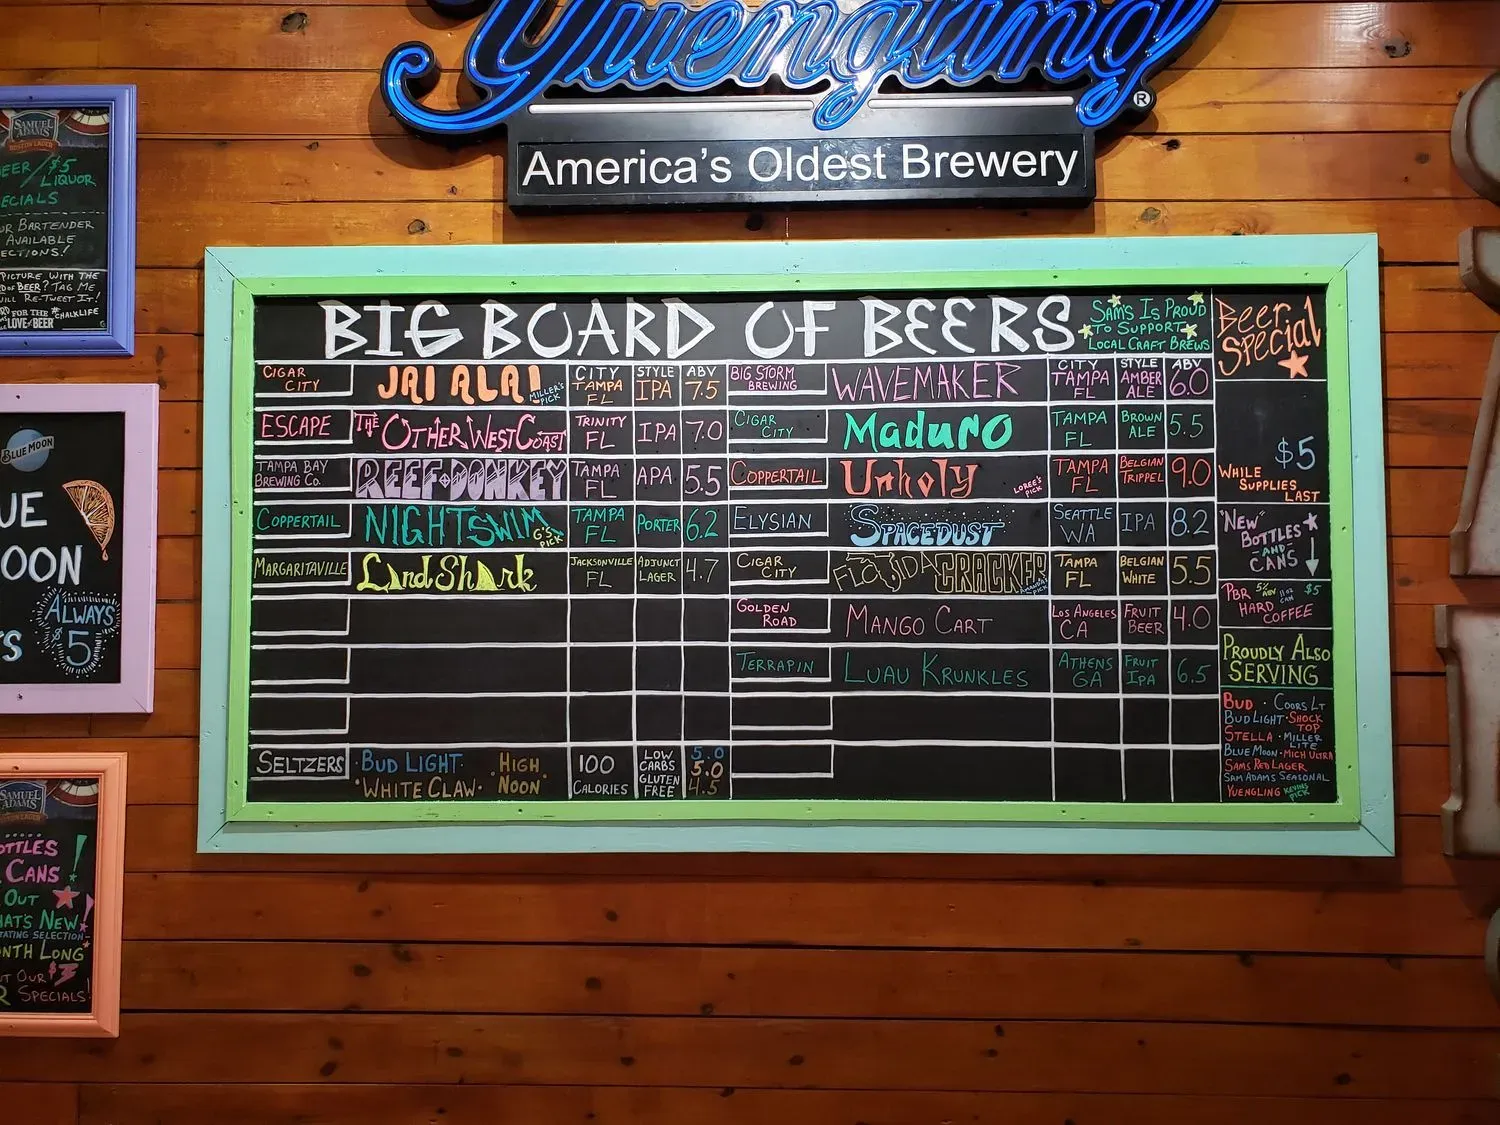 Yuengling®
America's Oldest Brewery
SAMUEL
ADAMS
BOSTON LAGER
BEER / $5
LIQUOR
SPECIALS
BARTENDER
AVAILABLE
PICTURE WITH THE
OF BEER? TAG ME
RE-TWEET IT!
FOR THE #CHALKLIFE
LOVE OF BEER
BLUE MOON
UE
OON
ALWAYS
$5
SAMUEL
ADAMS
OTTLES
CANS!
OUT
HAT'S NEW!
TATING SELECTION-
NTH LONG
OUR $3
SPECIALS!
BIG BOARD OF BEERS
SAM'S IS PROUD
TO SUPPORT
LOCAL CRAFT BREWS
CIGAR CITY JAI ALAI MILLER'S PICK CITY TAMPA FL STYLE IPA ABV 7.5
ESCAPE THE OTHER WEST COAST TRINITY FL IPA 7.0
TAMPA BAY BREWING CO. REEF DONKEY TAMPA FL APA 5.5
COPPERTAIL NIGHT SWIM G'S PICK TAMPA FL PORTER 6.2
MARGARITAVILLE LandShark JACKSONVILLE FL ADJUNCT LAGER 4.7
SELTZERS • BUD LIGHT • WHITE CLAW • HIGH NOON • 100 CALORIES LOW CARBS GLUTEN FREE 5.0 5.0 4.5
BIG STORM BREWING WAVEMAKER CITY TAMPA FL STYLE AMBER ALE ABV 6.0
CIGAR CITY Maduro TAMPA FL BROWN ALE 5.5
COPPERTAIL Unholy LOREE'S PICK TAMPA FL BELGIAN TRIPPEL 9.0
ELYSIAN SPACEDUST SEATTLE WA IPA 8.2
CIGAR CITY FLORIDA CRACKER PICK TAMPA FL BELGIAN WHITE 5.5
GOLDEN ROAD MANGO CART LOS ANGELES CA FRUIT BEER 4.0
TERRAPIN LUAU KRUNKLES ATHENS GA FRUIT IPA 6.5
Beer
Special
$5
WHILE
SUPPLIES
LAST
"NEW"
BOTTLES
-AND-
CANS
PBR 5% ABV 11oz CAN $5
HARD
COFFEE
PROUDLY ALSO
SERVING
BUD • COORS LT
BUD LIGHT • SHOCK TOP
STELLA • MILLER LITE
BLUE MOON • MICH ULTRA
SAMS RED LAGER
SAM ADAMS SEASONAL
YUENGLING KEVINS PICK